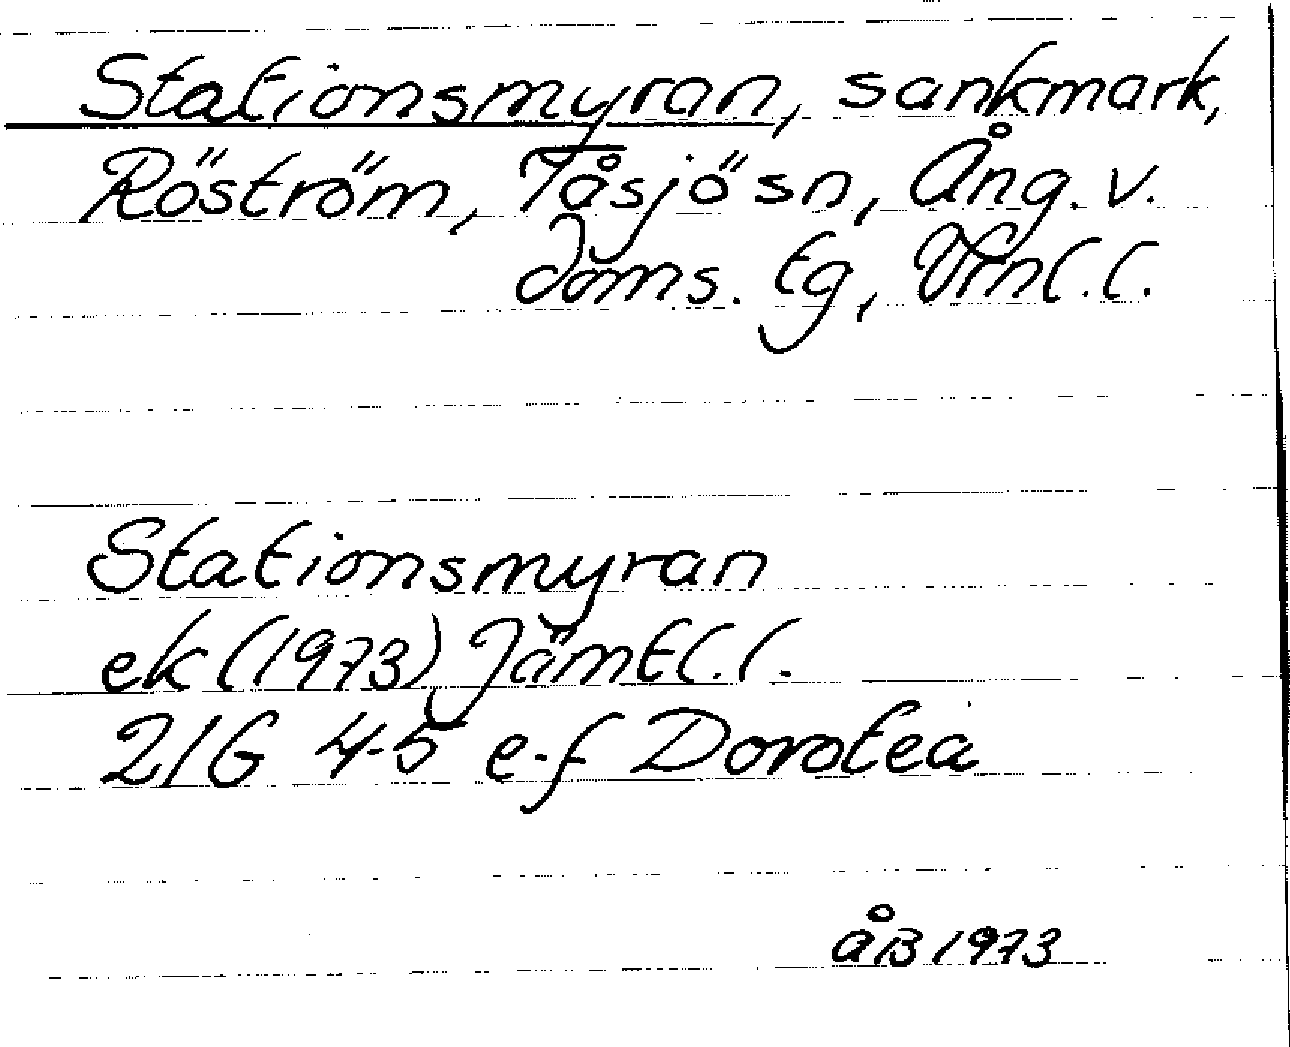 Stationsmyran, sankmark,
Röström, Tåsjö sn, Ång. v.
doms. tg, Vrnl. l.
Stationsmyran
ek (1973) Jämtl. l.
21G 4-5 e-f Dorotea
åB 1973